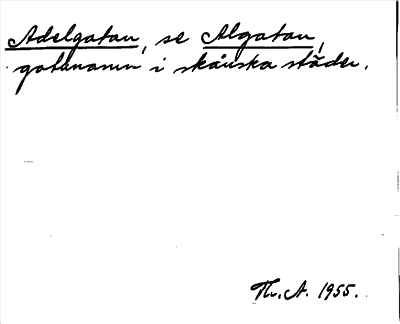 Adelgatan, se Algatan,
gatunamn i skånska städer.
Th. A. 1955.